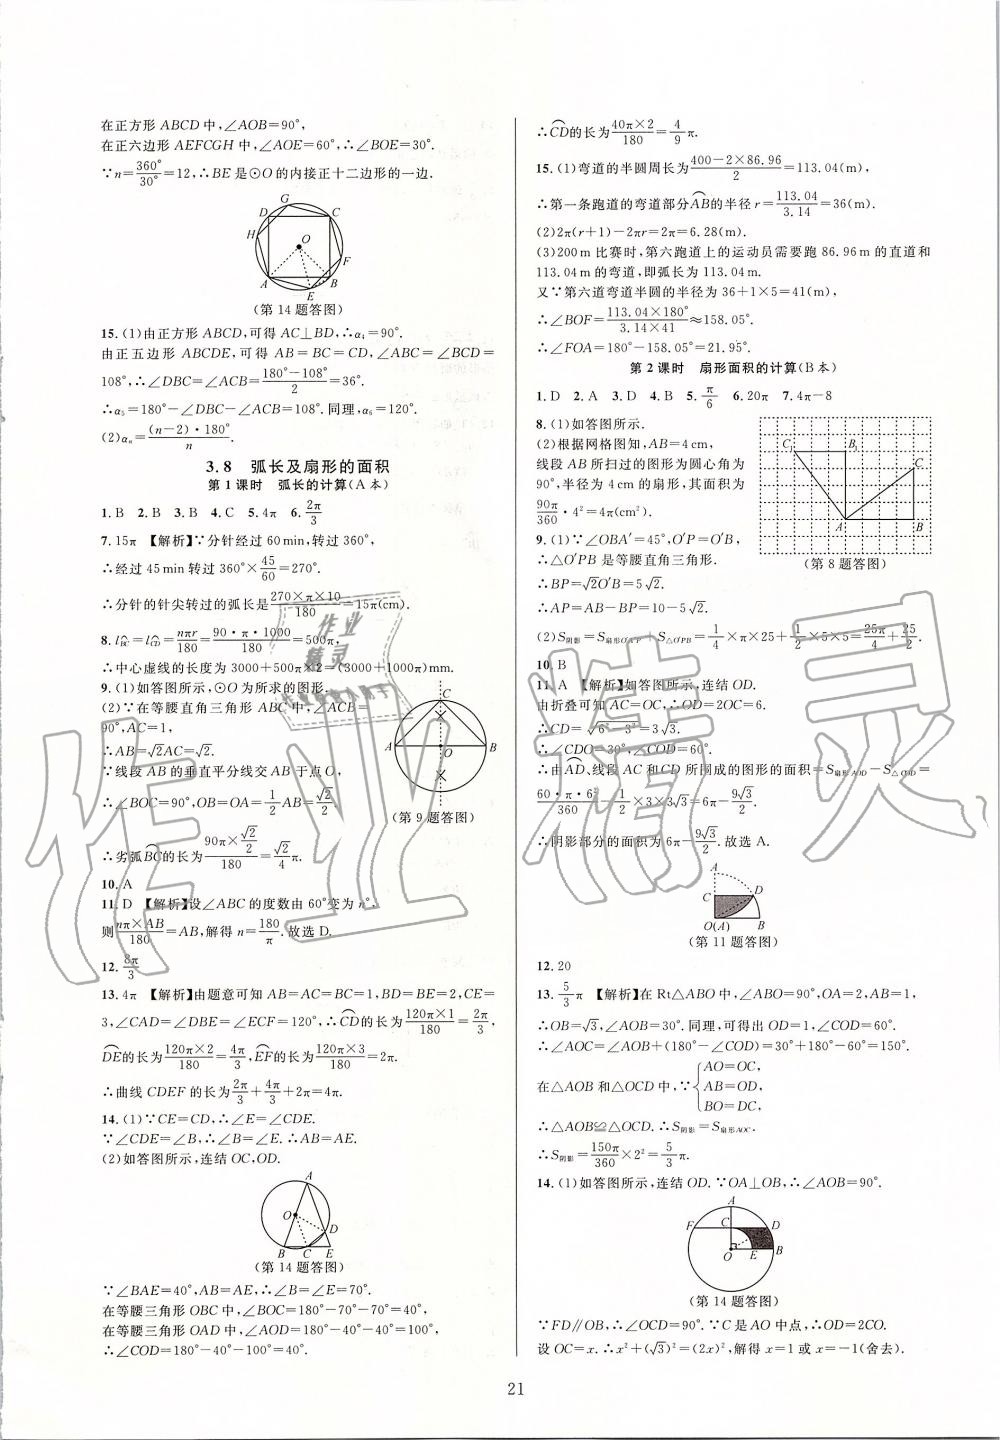 在正方形 ABCD 中,∠AOB=90°,
在正六边形 AEFCGH 中,∠AOE=60°,∴∠BOE=30°.
∵n=360°/30°=12,∴BE 是⊙O 的内接正十二边形的一边.
G
D C
H O
F
A B
E
(第 14 题答图)
15.(1)由正方形 ABCD,可得 AC⊥BD,∴α₄=90°.
由正五边形 ABCDE,可得 AB=BC=CD,∠ABC=∠BCD=
108°,∴∠DBC=∠ACB=(180°-108°)/2=36°.
∴α₅=180°-∠DBC-∠ACB=108°.同理,α₆=120°.
(2)αₙ=(n-2)·180°/n.
3.8 弧长及扇形的面积
第 1 课时 弧长的计算(A 本)
1.B 2.B 3.B 4.C 5.4π 6.2π/3
7.15π 【解析】∵分针经过 60 min,转过 360°,
∴经过 45 min 转过 360°×45/60=270°.
∴分针的针尖转过的弧长是(270×π×10)/180=15π(cm).
=nπr/180=(90·π·1000)/180=500π,
∴中心虚线的长度为 3000+500π×2=(3000+1000π)mm.
9.(1)如答图所示,⊙O 为所求的图形.
(2)∵在等腰直角三角形 ABC 中,∠ACB=
90°,AC=1,
∴AB=√2AC=√2.
∵线段 AB 的垂直平分线交 AB 于点 O,
∴∠BOC=90°,OB=OA=1/2AB=√2/2.
∴劣弧BC的长为(90π×√2/2)/180=√2/4π.
C
A O B
(第 9 题答图)
10.A
11.D 【解析】设∠ABC 的度数由 60°变为 n°,
则(nπ×AB)/180=AB,解得 n=180/π.故选 D.
12.8π/3
13.4π 【解析】由题意可知 AB=AC=BC=1,BD=BE=2,CE=
3,∠CAD=∠DBE=∠ECF=120°,∴CD的长为(120π×1)/180=2π/3,
DE的长为(120π×2)/180=4π/3,EF的长为(120π×3)/180=2π.
∴曲线 CDEF 的长为2π/3+4π/3+2π=4π.
14.(1)∵CE=CD,∴∠E=∠CDE.
∵∠CDE=∠B,∴∠B=∠E.∴AB=AE.
(2)如答图所示,连结 OC,OD.
A
O
D
B C E
(第 14 题答图)
∵∠BAE=40°,AB=AE,∴∠B=∠E=70°.
在等腰三角形 OBC 中,∠BOC=180°-70°-70°=40°,
在等腰三角形 OAD 中,∠AOD=180°-40°-40°=100°.
∴∠COD=180°-40°-100°=40°.
∴CD的长为(40π×2)/180=4/9π.
15.(1)弯道的半圆周长为(400-2×86.96)/2=113.04(m),
∴第一条跑道的弯道部分AB的半径 r=113.04/3.14=36(m).
(2)2π(r+1)-2πr=2π=6.28(m).
(3)200 m 比赛时,第六跑道上的运动员需要跑 86.96 m 的直道和
113.04 m 的弯道,即弧长为 113.04 m.
又∵第六道弯道半圆的半径为 36+1×5=41(m),
∴∠BOF=(113.04×180°)/(3.14×41)≈158.05°.
∴∠FOA=180°-158.05°=21.95°.
第 2 课时 扇形面积的计算(B 本)
1.D 2.A 3.D 4.B 5.π/6 6.20π 7.4π-8
8.(1)如答图所示.
(2)根据网格图知,AB=4 cm,
线段 AB 所扫过的图形为圆心角为
90°,半径为 4 cm 的扇形,其面积为
90π/360·4²=4π(cm²).
C₁ B₁
C
A B
(第 8 题答图)
9.(1)∵∠OBA′=45°,O′P=O′B,
∴△O′PB 是等腰直角三角形.
∴BP=√2O′B=5√2.
∴AP=AB-BP=10-5√2.
(2)S阴影=S扇形O′A′P+S△O′PB=1/4×π×25+1/2×5×5=25π/4+25/2.
10.B
11.A 【解析】如答图所示,连结 OD.
由折叠可知 AC=OC,∴OD=2OC=6.
∴CD=√(6²-3²)=3√3.
∴∠CDO=30°,∠COD=60°.
∴由AD、线段 AC 和 CD 所围成的图形的面积=S扇形AOD-S△COD=
(60·π·6²)/360-1/2×3×3√3=6π-9√3/2.
∴阴影部分的面积为 6π-9√3/2.故选 A.
A
C D
O(A) B
(第 11 题答图)
12.20
13.5/3π 【解析】在 Rt△ABO 中,∠ABO=90°,OA=2,AB=1,
∴OB=√3,∠AOB=30°.同理,可得出 OD=1,∠COD=60°.
∴∠AOC=∠AOB+(180°-∠COD)=30°+180°-60°=150°.
在△AOB 和△OCD 中,∵{AO=OC,
AB=OD,
BO=DC,
∴△AOB≌△OCD.∴S阴影=S扇形AOC.
∴S阴影=150π/360×2²=5/3π.
14.(1)如答图所示,连结 OD.∵OA⊥OB,∴∠AOB=90°.
A
F C D
O E B
(第 14 题答图)
∵FD∥OB,∴∠OCD=90°.∵C 是 AO 中点,∴OD=2CO.
设 OC=x.∴x²+(√3)²=(2x)²,解得 x=1 或 x=-1(舍去).
21
作业精灵